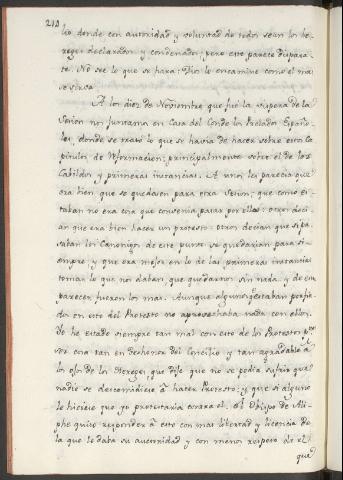 212
lio donde con autoridad y voluntad de todos sean los he-
reges declarados y condenados; pero esto parece dispara-
te. No see lo que se hara: Dios lo encamine como el mas
se sirva.
A los diez de Noviembre que fué la vispera de la
Sesion nos juntamos en Casa del Conde los Prelados Españo-
les, donde se trató lo que se havia de hacer sobre estos Ca-
pitulos de Reformacion; principalmente sobre el de los
Cabildos y primeras instancias. A unos les parecia que
era bien que se quedasen para otra Sesion; que como es-
taban no era cosa que convenia pasar por ellos: otros deci-
an que era bien hacer un protesto: otros decian que si pa-
saban los Canonigos de este punto se quedarian para si-
empre, y que era mejor en lo de las primeras instancias
tomar lo que nos daban, que quedarnos sin nada; y de este
parecer fueron los mas. Aunque algunos estaban porfia-
dos en esto del Protesto no aprovechaba nada con ellos.
Yo he estado siempre tan mal con esto de los Protestos por
ser cosa tan en deshonor del Concilio y tan agradable á
los ojos de los Hereges que dije que no se podia sufrir que
nadie se descomidiese á hacer Protesto; y que si alguno
lo hiciese que yo protestaria contra el. El Obispo de Ali-
phe quiso responder á esto con mas libertad y licencia de
la que le daba su autoridad y con menos respeto de el
que